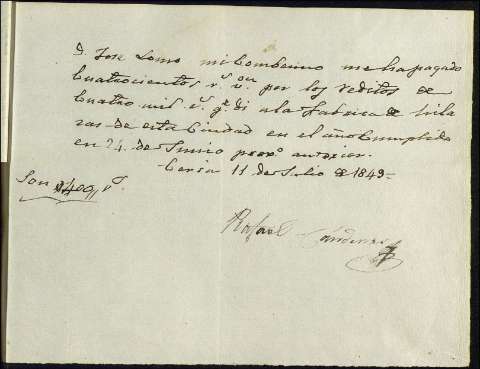 D. Jose Lomo mi Combecino me ha pagado
Cuatrocientos r.s v.on por los reditos de
Cuatro mil r.s q.e di a la Fabrica de hila
zas de esta Ciudad en el año Cumplido
en 24 de Junio prox.o anterior.
Coria 11 de Julio de 1849=
Son 400 r.s
Rafael